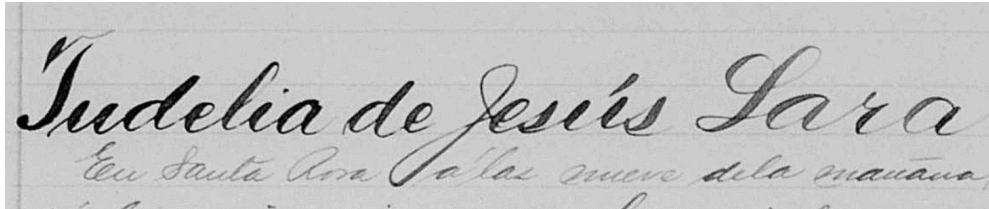 Tudelia de Jesús Lara
En Santa Rosa a las nueve dela mañana